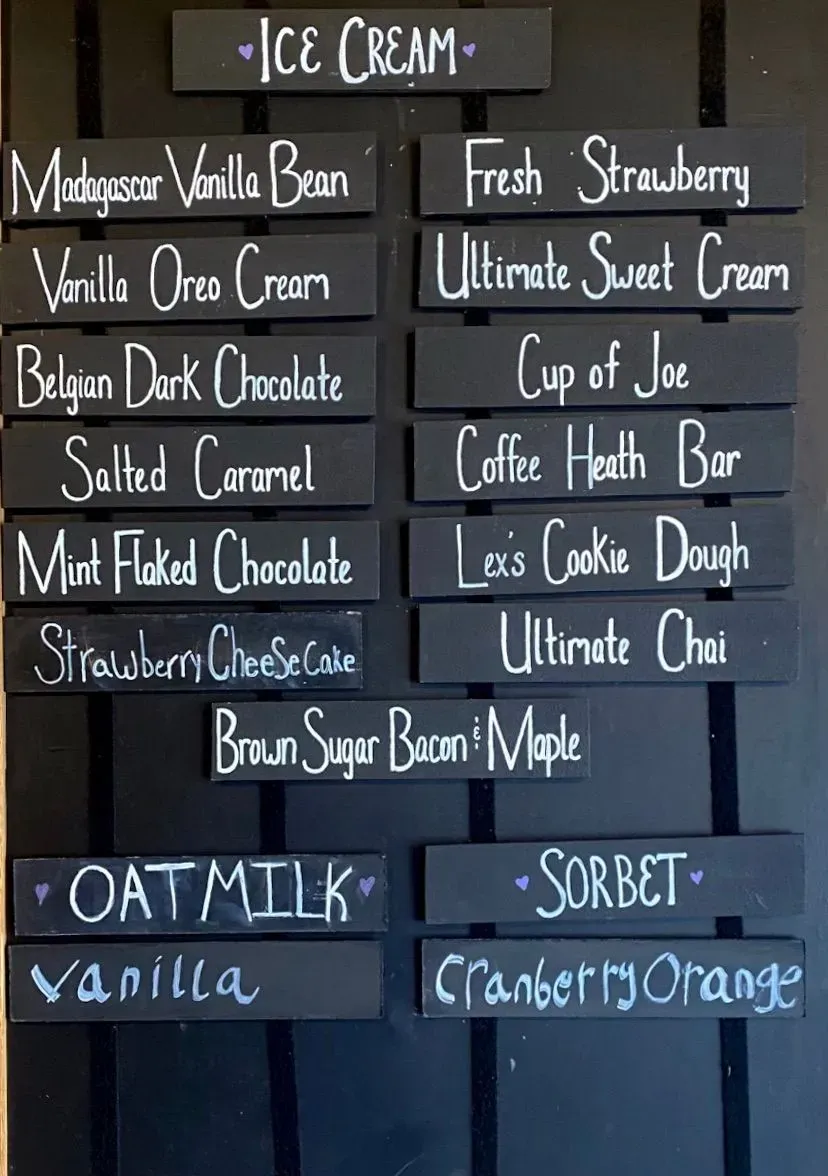 ICE CREAM
Madagascar Vanilla Bean
Vanilla Oreo Cream
Belgian Dark Chocolate
Salted Caramel
Mint Flaked Chocolate
Strawberry CheeSe Cake
Fresh Strawberry
Ultimate Sweet Cream
Cup of Joe
Coffee Heath Bar
Lex's Cookie Dough
Ultimate Chai
Brown Sugar Bacon & Maple
OATMILK
Vanilla
SORBET
Cranberry Orange